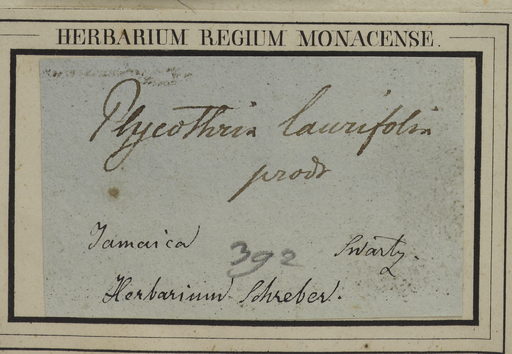 HERBARIUM REGIUM MONACENSE.
Plycothria laurifolia
prodr
Jamaica 392 Swartz.
Herbarium Schreber.